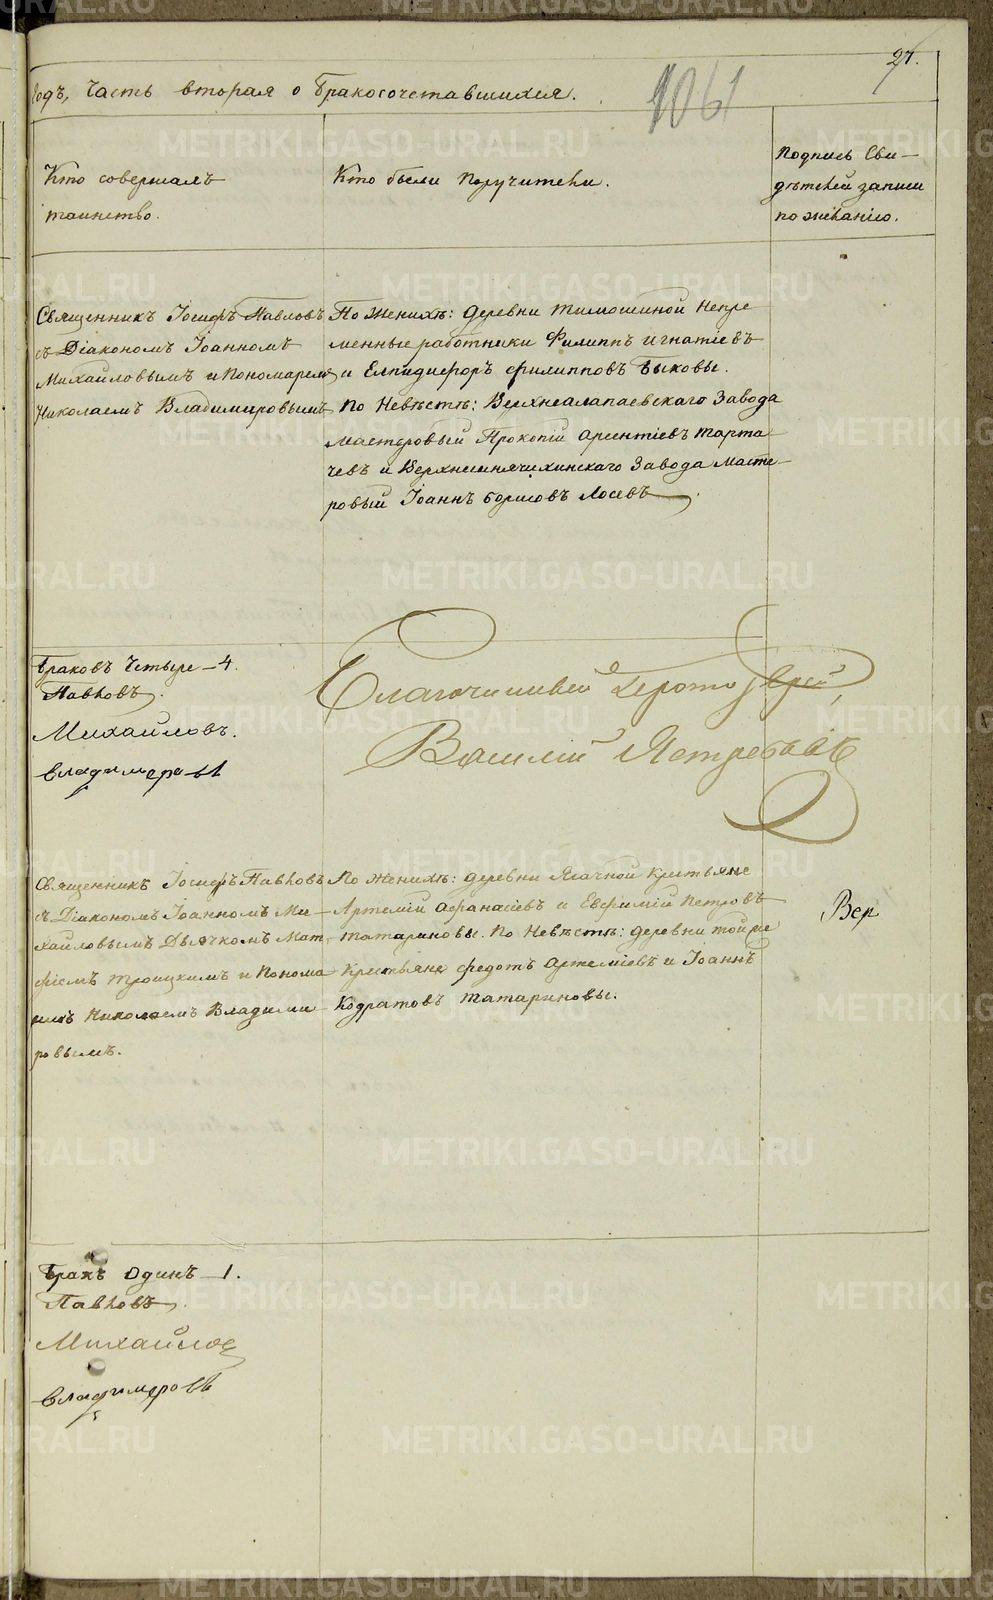 27.
1061
годъ, Часть вторая о бракосочетавшихся.
Кто совершалъ
таинство.
Кто были поручители.
Подпись Сви-
дѣтелей записи
по желанію.
Священникъ Іосифъ Павловъ
съ Діакономъ Іоанномъ
Михайловымъ и Пономаремъ
Николаемъ Владимировымъ
По Женихѣ: деревни Тимошиной Непре
менные работники Филиппъ Игнатіевъ
и Елпидифоръ Филипповъ Быковы.
По Невѣстѣ: Верхнеалапаевскаго Завода
Мастеровый Прокопій Арсентіевъ Тарта
чевъ и Верхнесинячихинскаго Завода Масте-
ровый Іоаннъ Борисовъ Лосевъ.
Браковъ Четыре - 4.
Павловъ.
Михайловъ.
Владимеровъ
Благочинный
Василій Ястребовъ
Священникъ Іосифъ Павловъ
съ Діакономъ Іоанномъ Ми-
хайловымъ Дьячкомъ Мат-
фіемъ Троицкимъ и Понома
Николаемъ Владими
ровымъ.
По Женихѣ: деревни Ялачной Крестьяне
Артемій Афанасіевъ и Евфимій Петровъ
Татариновы. По Невѣстѣ: деревни той же
Крестьяне Федотъ Артеміевъ и Іоаннъ
Кодратовъ Татариновы.
Вер
Бракъ Одинъ - 1.
Павловъ.
Михайловъ
Владимеровъ
METRIKI.GASO-URAL.RU